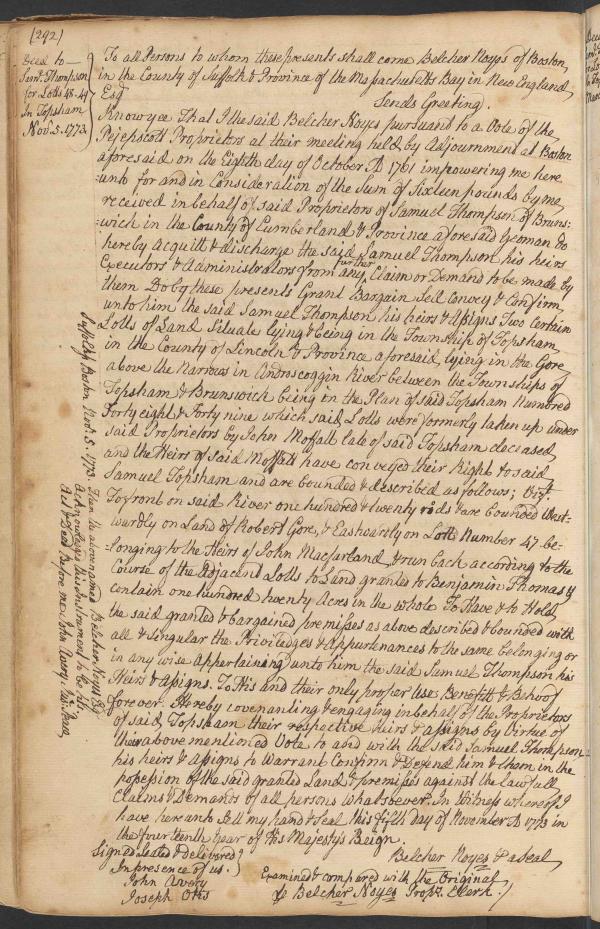 (292)
Deed to
Saml. Thompson
for Lotts 48.49
In Topsham
Novr. 5. 1773.
To all Persons to whom these presents shall come Belcher Noyes of Boston,
in the County of Suffolk & Province of the Massachusetts Bay in New England,
Esqr
Sends Greeting.
Know yee That I the said Belcher Noyes pursuant to a Vote of the
Pejepscott Proprietors at their meeting held by Adjournment at Boston
aforesaid on the Eighth day of October AD 1761 impowering me here
=unto for and in Consideration of the Sum of Sixteen pounds by me
received in behalf of said Proprietors of Samuel Thompson of Bruns=
=wick in the County of Cumberland & Province aforesaid Yeoman Do
hereby Acquitt & discharge the said Samuel Thompson his heirs
Executors & Administrators from any further Claim or Demand to be made by
them Do by these presents Grant Bargain Sell Convey & Confirm
unto him the said Samuel Thompson his heirs & Assigns Two Certain
Lotts of Land Situate lying & being in the Township of Topsham
in the County of Lincoln & Province aforesaid, lying in the Gore
above the Narrows in Androscoggin River between the Townships of
Topsham & Brunswick being in the Plan of said Topsham Numbred
Forty eight & Forty nine which said Lotts were formerly taken up under
said Proprietors by John Moffatt late of said Topsham deceased
and the Heirs of said Moffatt have conveyed their Right to said
Samuel Topsham and are bounded & described as follows; Vizt.
To front on said River one hundred & twenty rods & are bounded West=
wardly on Land of Robert Gore, & Eastwardly on Lott Number 47 be=
=longing to the Heirs of John Macfarland, & run back according to the
Course of the Adjacent Lotts to Land granted to Benjamin Thomas &
contain one hundred twenty Acres in the whole To Have & to Hold
the said granted & bargained premisses as above described & bounded with
all & Singular the Priviledges & Appurtenances to the same belonging or
in any wise Appertaining unto him the said Samuel Thompson his
Heirs & Assigns. To His and their only proper Use Benefitt & Behoof
forever. Hereby covenanting & engaging in behalf of the Proprietors
of said Topsham their respective heirs & assigns by Virtue of
their above mentioned Vote to and with the said Samuel Thompson
his heirs & Assigns to Warrant Confirm & Defend him & them in the
possession of the said granted Land & premisses against the lawfull
Claims & Demands of all persons whatsoever. In Witness whereof I
have hereunto Sett my hand & seal this Fifth day of November AD 1773 in
the fourteenth Year of His Majesty's Reign.
Signed Sealed & delivered
In presence of us.
John Avery
Joseph Otis
Belcher Noyes & a seal
Examined & compared with the Original
Belcher Noyes Propr. Clerk.
Suffolk ss Boston Novr. 5. 1773. Then the above named Belcher Noyes Esqr
acknowledged this Instrument to be his
Act & Deed Before me John Avery. Jus: Peace